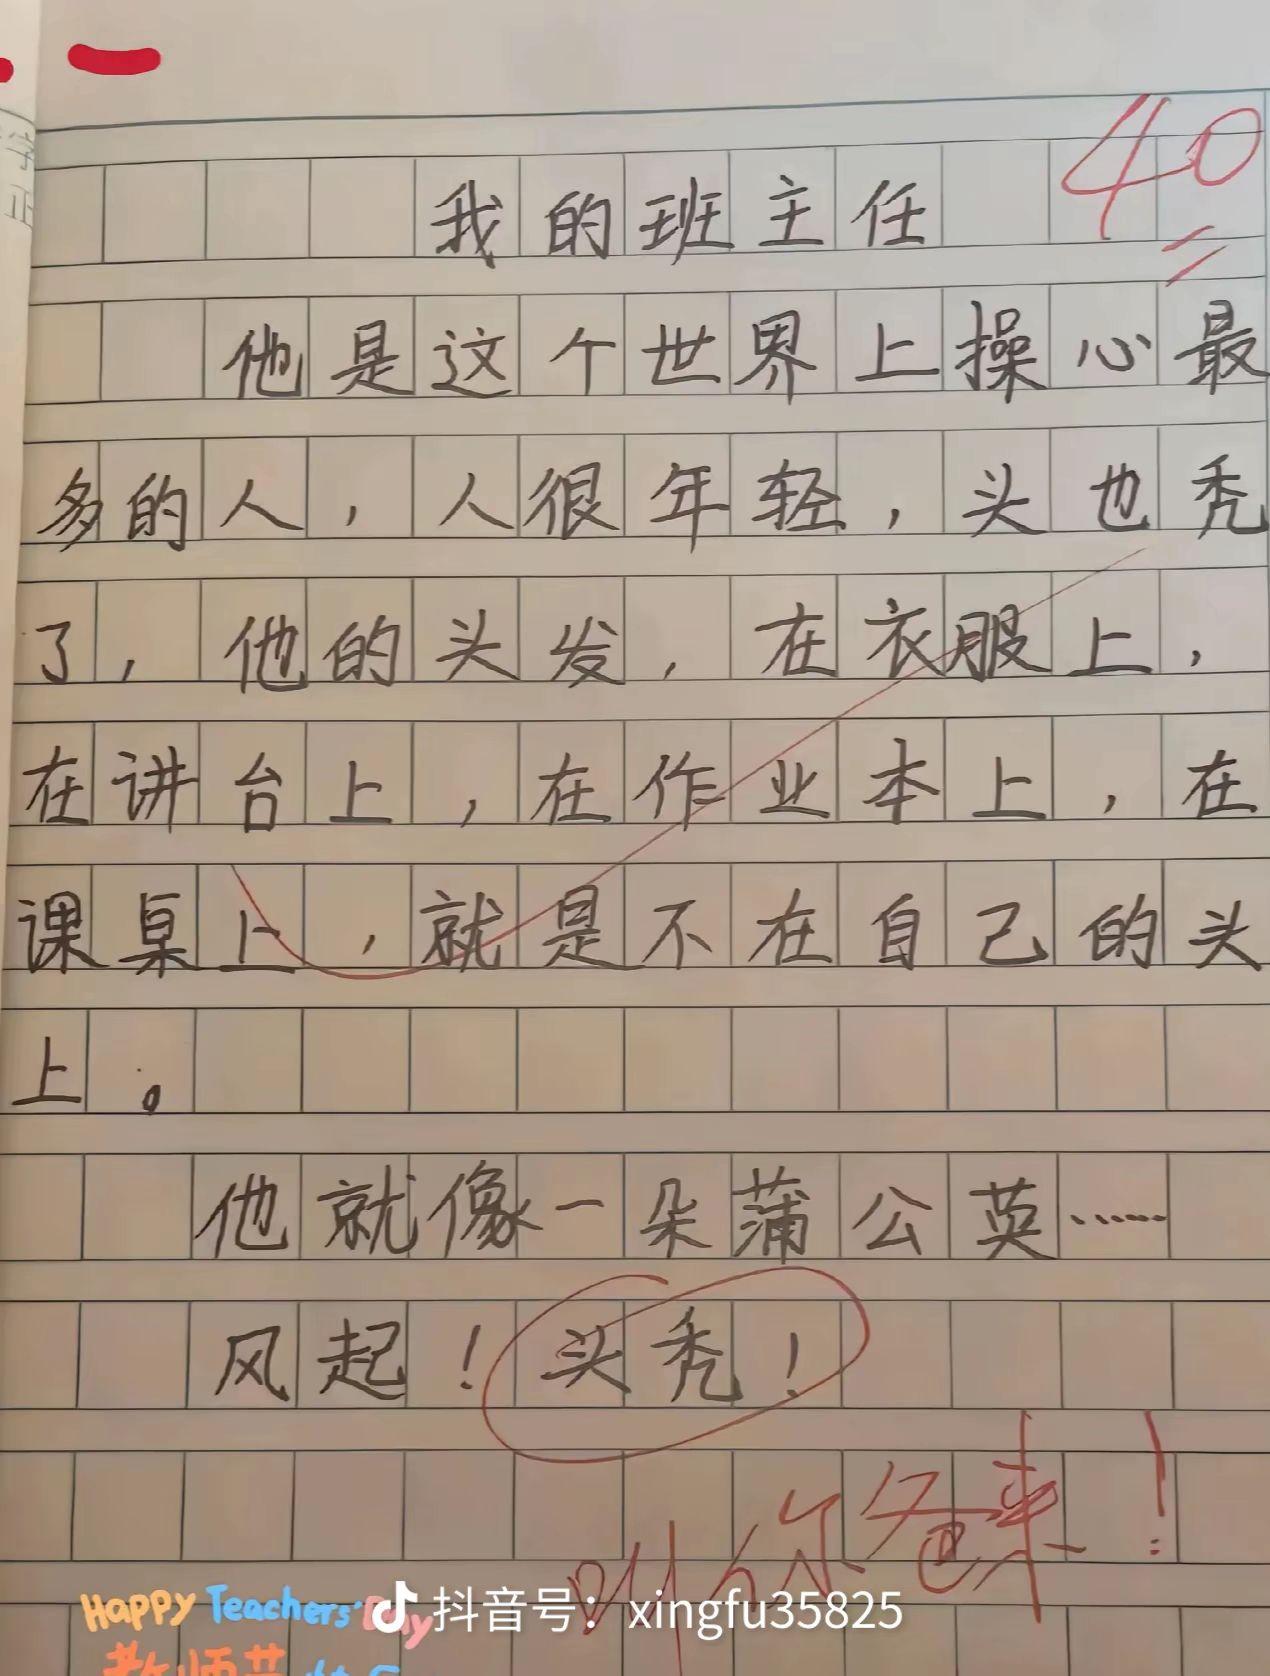 40
我的班主任
他是这个世界上操心最
多的人，人很年轻，头也秃
了，他的头发，在衣服上，
在讲台上，在作业本上，在
课桌上，就是不在自己的头
上。
他就像一朵蒲公英……
风起！头秃！
叫你爸来！
Happy Teachers' Day
抖音号：xingfu35825